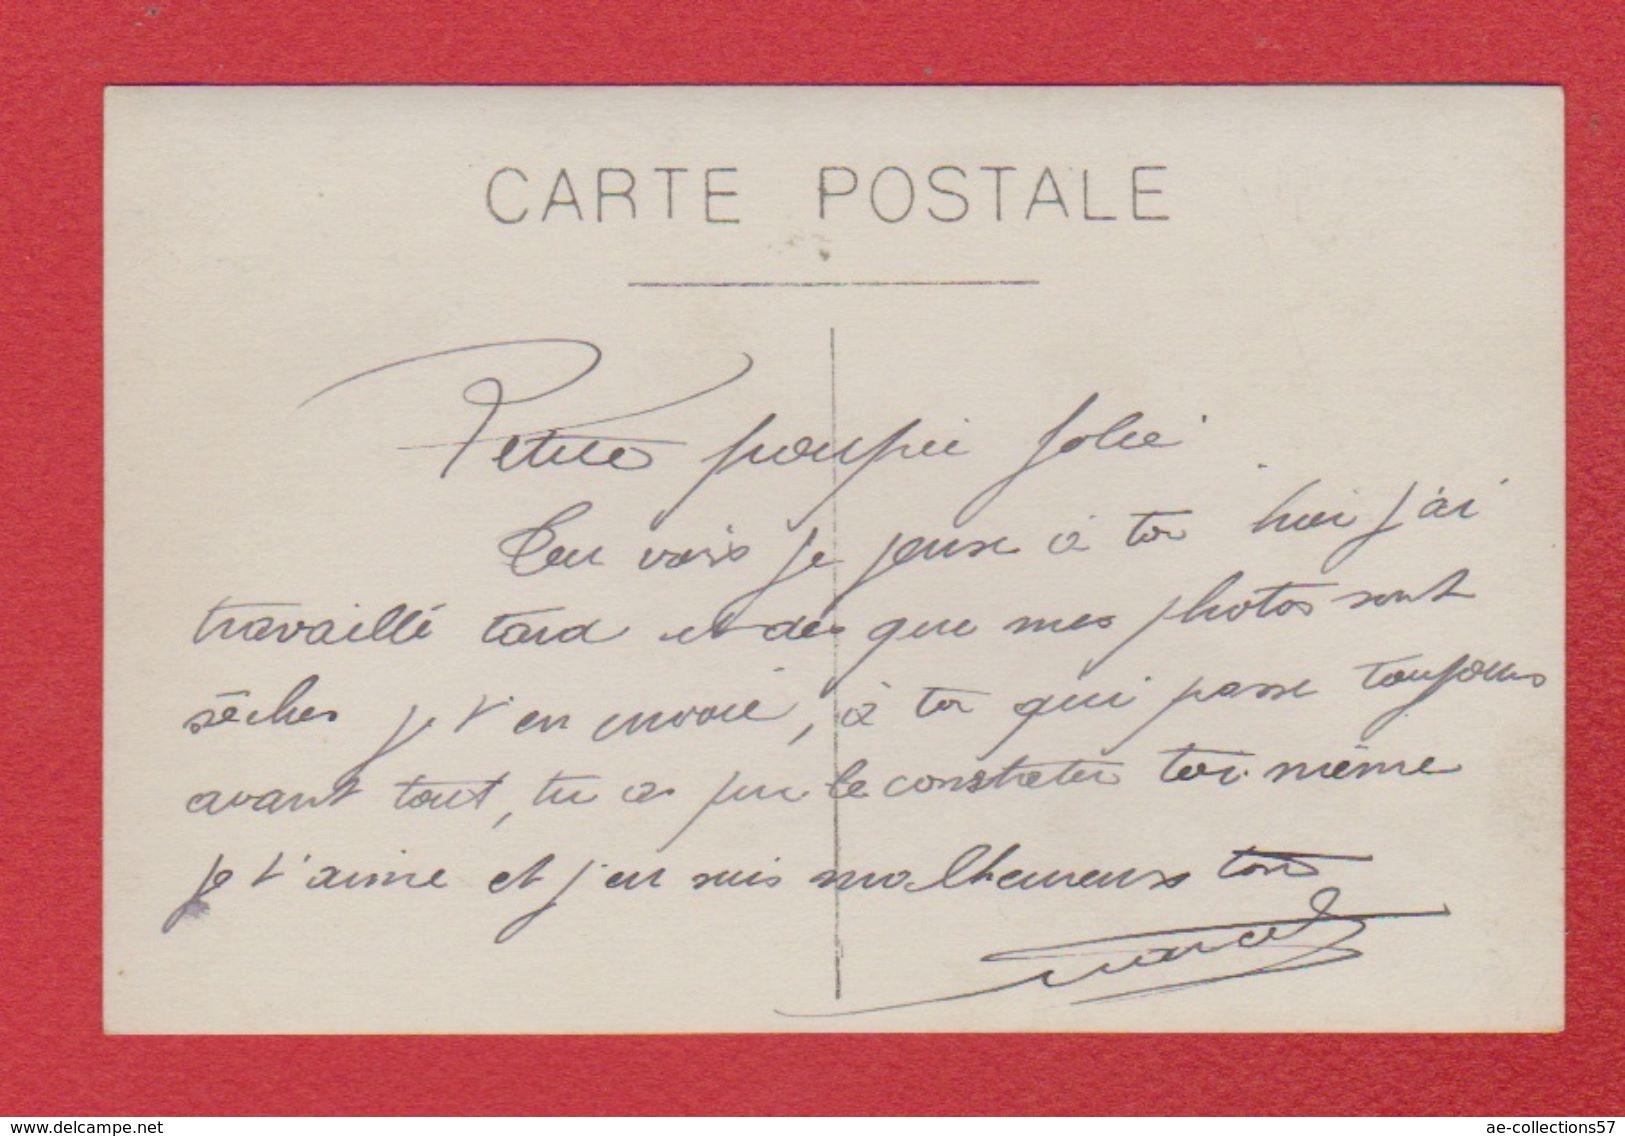 CARTE POSTALE
Petite poupée jolie
Tu vois je pense à toi hier j'ai
travaillé tard et dès que mes photos sont
sêches je t'en envoie, à toi qui passe toujours
avant tout, tu as pu le constater toi-même
je t'aime et j'en suis malheureux ton
Marcel
www.delcampe.net
ae-collections57